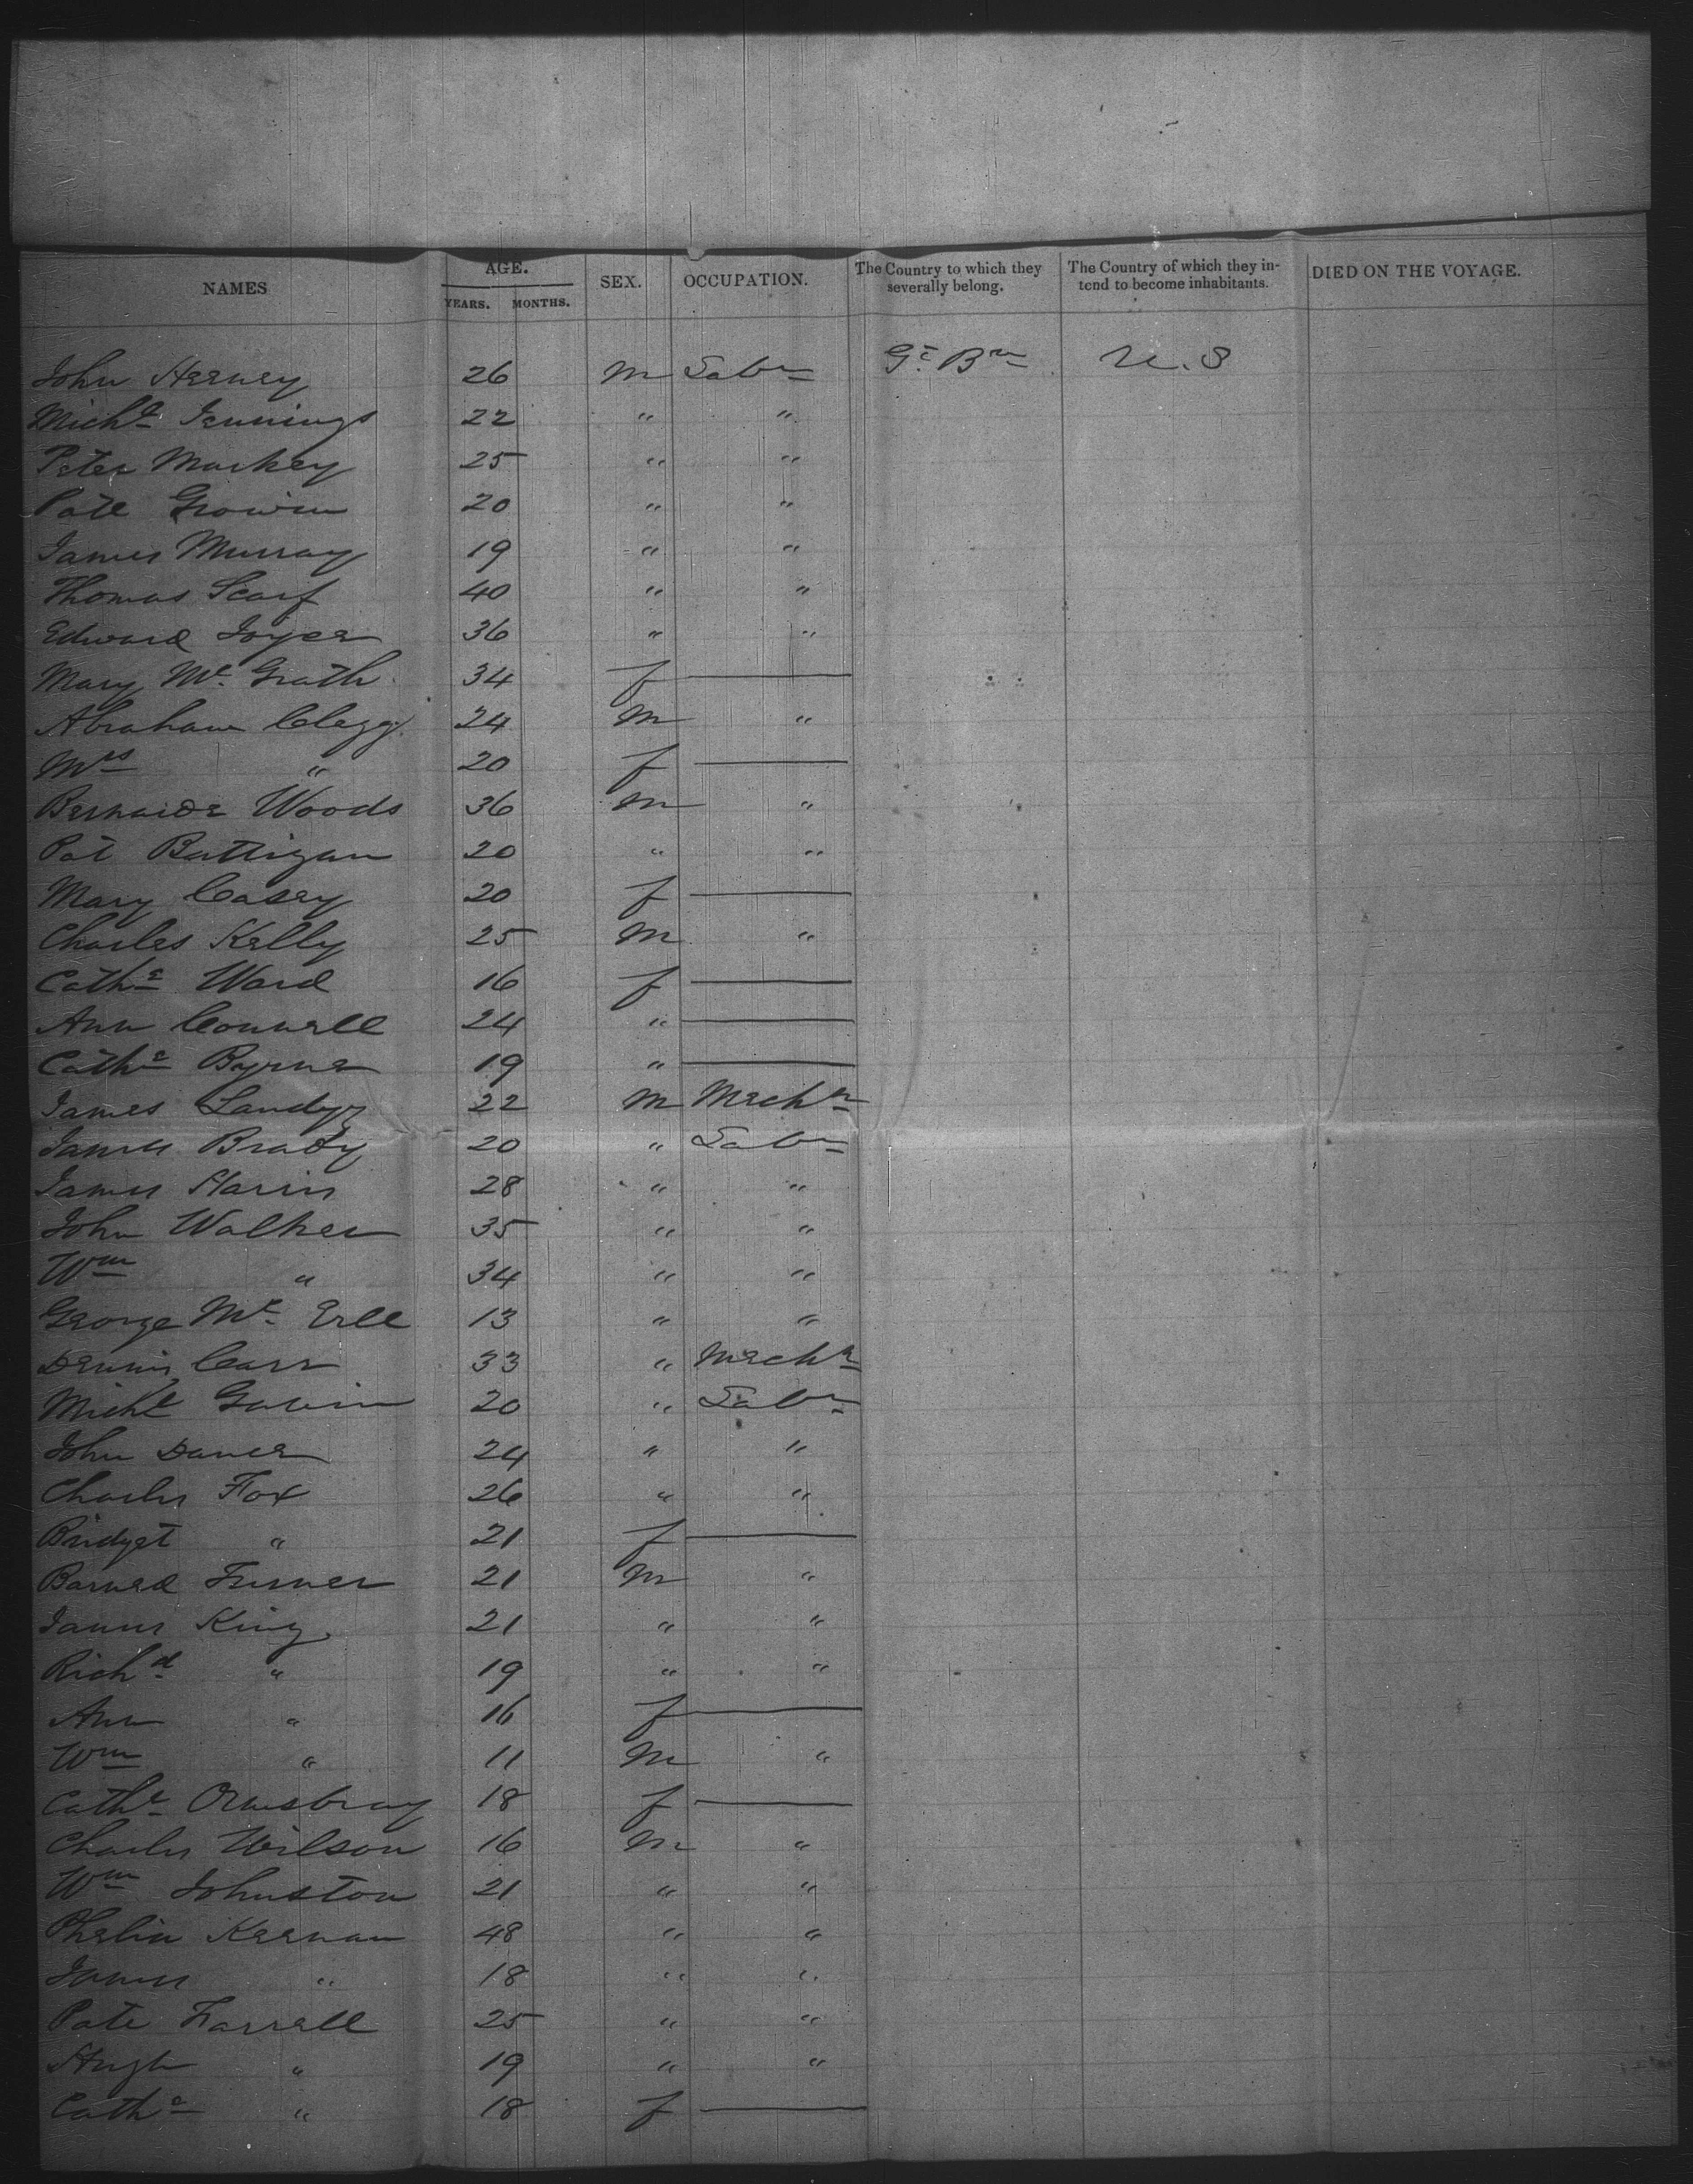 NAMES AGE. YEARS. MONTHS. SEX. OCCUPATION. The Country to which they severally belong. The Country of which they intend to become inhabitants. DIED ON THE VOYAGE.
John 26 M Labr Gt. Brn U.S
Michl Jennings 22 " "
Peter Markey 25 " "
20 " "
James Murray 19 " "
Thomas Scarf 40 " "
Edward Joyce 36 " "
Mary Mc Grath 34 f —
Abraham Clegg 24 M "
Mrs " 20 f —
Woods 36 M "
Pat Battigan 20 " "
Mary Casey 20 f —
Charles Kelly 25 M "
Cathe Ward 16 f —
Ann Connell 24 " —
Cathe Byrne 19 " —
James Landy 22 M Mechn
James Brady 20 " Labr
James Harris 28 " "
John Walker 35 " "
Wm " 34 " "
George Mc 13 " "
Dennis Carr 33 " Mechn
Michl Gavin 20 " Labr
John 24 " "
Charles Fox 26 " "
Bridget " 21 f —
21 M "
James King 21 " "
Richd " 19 " "
Ann " 16 f —
Wm " 11 M "
Cathe 18 f —
Charles Wilson 16 M "
Wm Johnston 21 " "
Phelin Keenan 48 " "
James " 18 " "
Farrell 25 " "
Hugh " 19 " "
Cathe " 18 f —